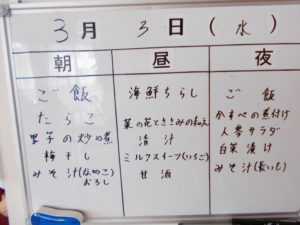 3月 3日 (水)
朝 昼 夜
ご飯
たらこ
茄子の炒め煮
梅干し
みそ汁(なめこ
おろし
海鮮ちらし
菜の花とささみの和え
清汁
ミルクスイーツ(いちご)
甘酒
ご飯
かすべの煮付け
人参サラダ
白菜漬け
みそ汁(長いも)